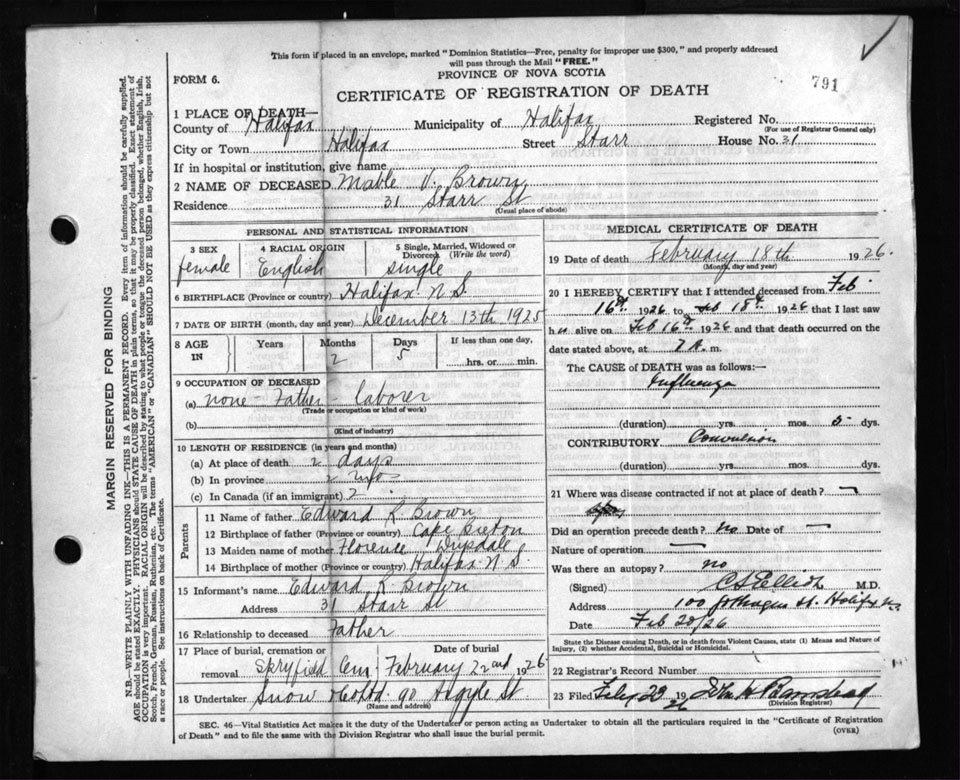 This form if placed in an envelope, marked "Dominion Statistics—Free, penalty for improper use $300," and properly addressed
will pass through the Mail "FREE."
PROVINCE OF NOVA SCOTIA
791
FORM 6.
CERTIFICATE OF REGISTRATION OF DEATH
1 PLACE OF DEATH—
County of Halifax Municipality of Halifax Registered No.
(For use of Registrar General only)
City or Town Halifax Street Starr House No. 31
If in hospital or institution, give name
2 NAME OF DECEASED Mable V. Brown
Residence 31 Starr St
(Usual place of abode)
PERSONAL AND STATISTICAL INFORMATION
3 SEX 4 RACIAL ORIGIN 5 Single, Married, Widowed or Divorced (Write the word)
female English single
6 BIRTHPLACE (Province or country) Halifax N S.
7 DATE OF BIRTH (month, day and year) December 13th 1925
8 AGE IN Years Months Days If less than one day,
2 5 hrs. or min.
9 OCCUPATION OF DECEASED
(a) none - Father - laborer
(Trade or occupation or kind of work)
(b)
(Kind of industry)
10 LENGTH OF RESIDENCE (in years and months)
(a) At place of death 2 days
(b) In province 2 mos
(c) In Canada (if an immigrant) 2
Parents
11 Name of father Edward R. Brown
12 Birthplace of father (Province or country) Cape Breton
13 Maiden name of mother Florence
14 Birthplace of mother (Province or country) Halifax N S.
15 Informant's name Edward R. Brown
Address 31 Starr St
16 Relationship to deceased Father
17 Place of burial, cremation or removal Date of burial
Spryfield Cem February 22nd 1926
18 Undertaker Snow & Co Ltd 90 Argyle St
(Name and address)
MEDICAL CERTIFICATE OF DEATH
19 Date of death February 18th 1926.
(Month, day and year)
20 I HEREBY CERTIFY that I attended deceased from Feb
16th 1926 to Feb 18th 1926 that I last saw
h alive on Feb 16th 1926 and that death occurred on the
date stated above, at 7 A. m.
The CAUSE of DEATH was as follows:—
Influenza
(duration) yrs. mos. 5 dys.
CONTRIBUTORY Convulsion
(duration) yrs. mos. dys.
21 Where was disease contracted if not at place of death? —
Did an operation precede death? no Date of —
Nature of operation —
Was there an autopsy? no
(Signed) Elliot M.D.
Address 100 St. Halifax
Date Feb 20/26
State the Disease causing Death, or in death from Violent Causes, state (1) Means and Nature of
Injury, (2) whether Accidental, Suicidal or Homicidal.
22 Registrar's Record Number
23 Filed Feby 22 1926
(Division Registrar)
SEC. 46—Vital Statistics Act makes it the duty of the Undertaker or person acting as Undertaker to obtain all the particulars required in the "Certificate of Registration
of Death" and to file the same with the Division Registrar who shall issue the burial permit.
(OVER)
MARGIN RESERVED FOR BINDING
N.B.—WRITE PLAINLY WITH UNFADING INK—THIS IS A PERMANENT RECORD. Every item of information should be carefully supplied.
AGE should be stated EXACTLY. PHYSICIANS should STATE CAUSE OF DEATH in plain terms, so that it may be properly classified. Exact statement of
OCCUPATION is very important. RACIAL ORIGIN will be described by stating to what people or tongue the deceased person belonged, whether English, Irish,
Scotch, French, German, Russian, Ruthenian, etc. The terms "AMERICAN" or "CANADIAN" SHOULD NOT BE USED as they express citizenship but not
a race or people. See instructions on back of Certificate.